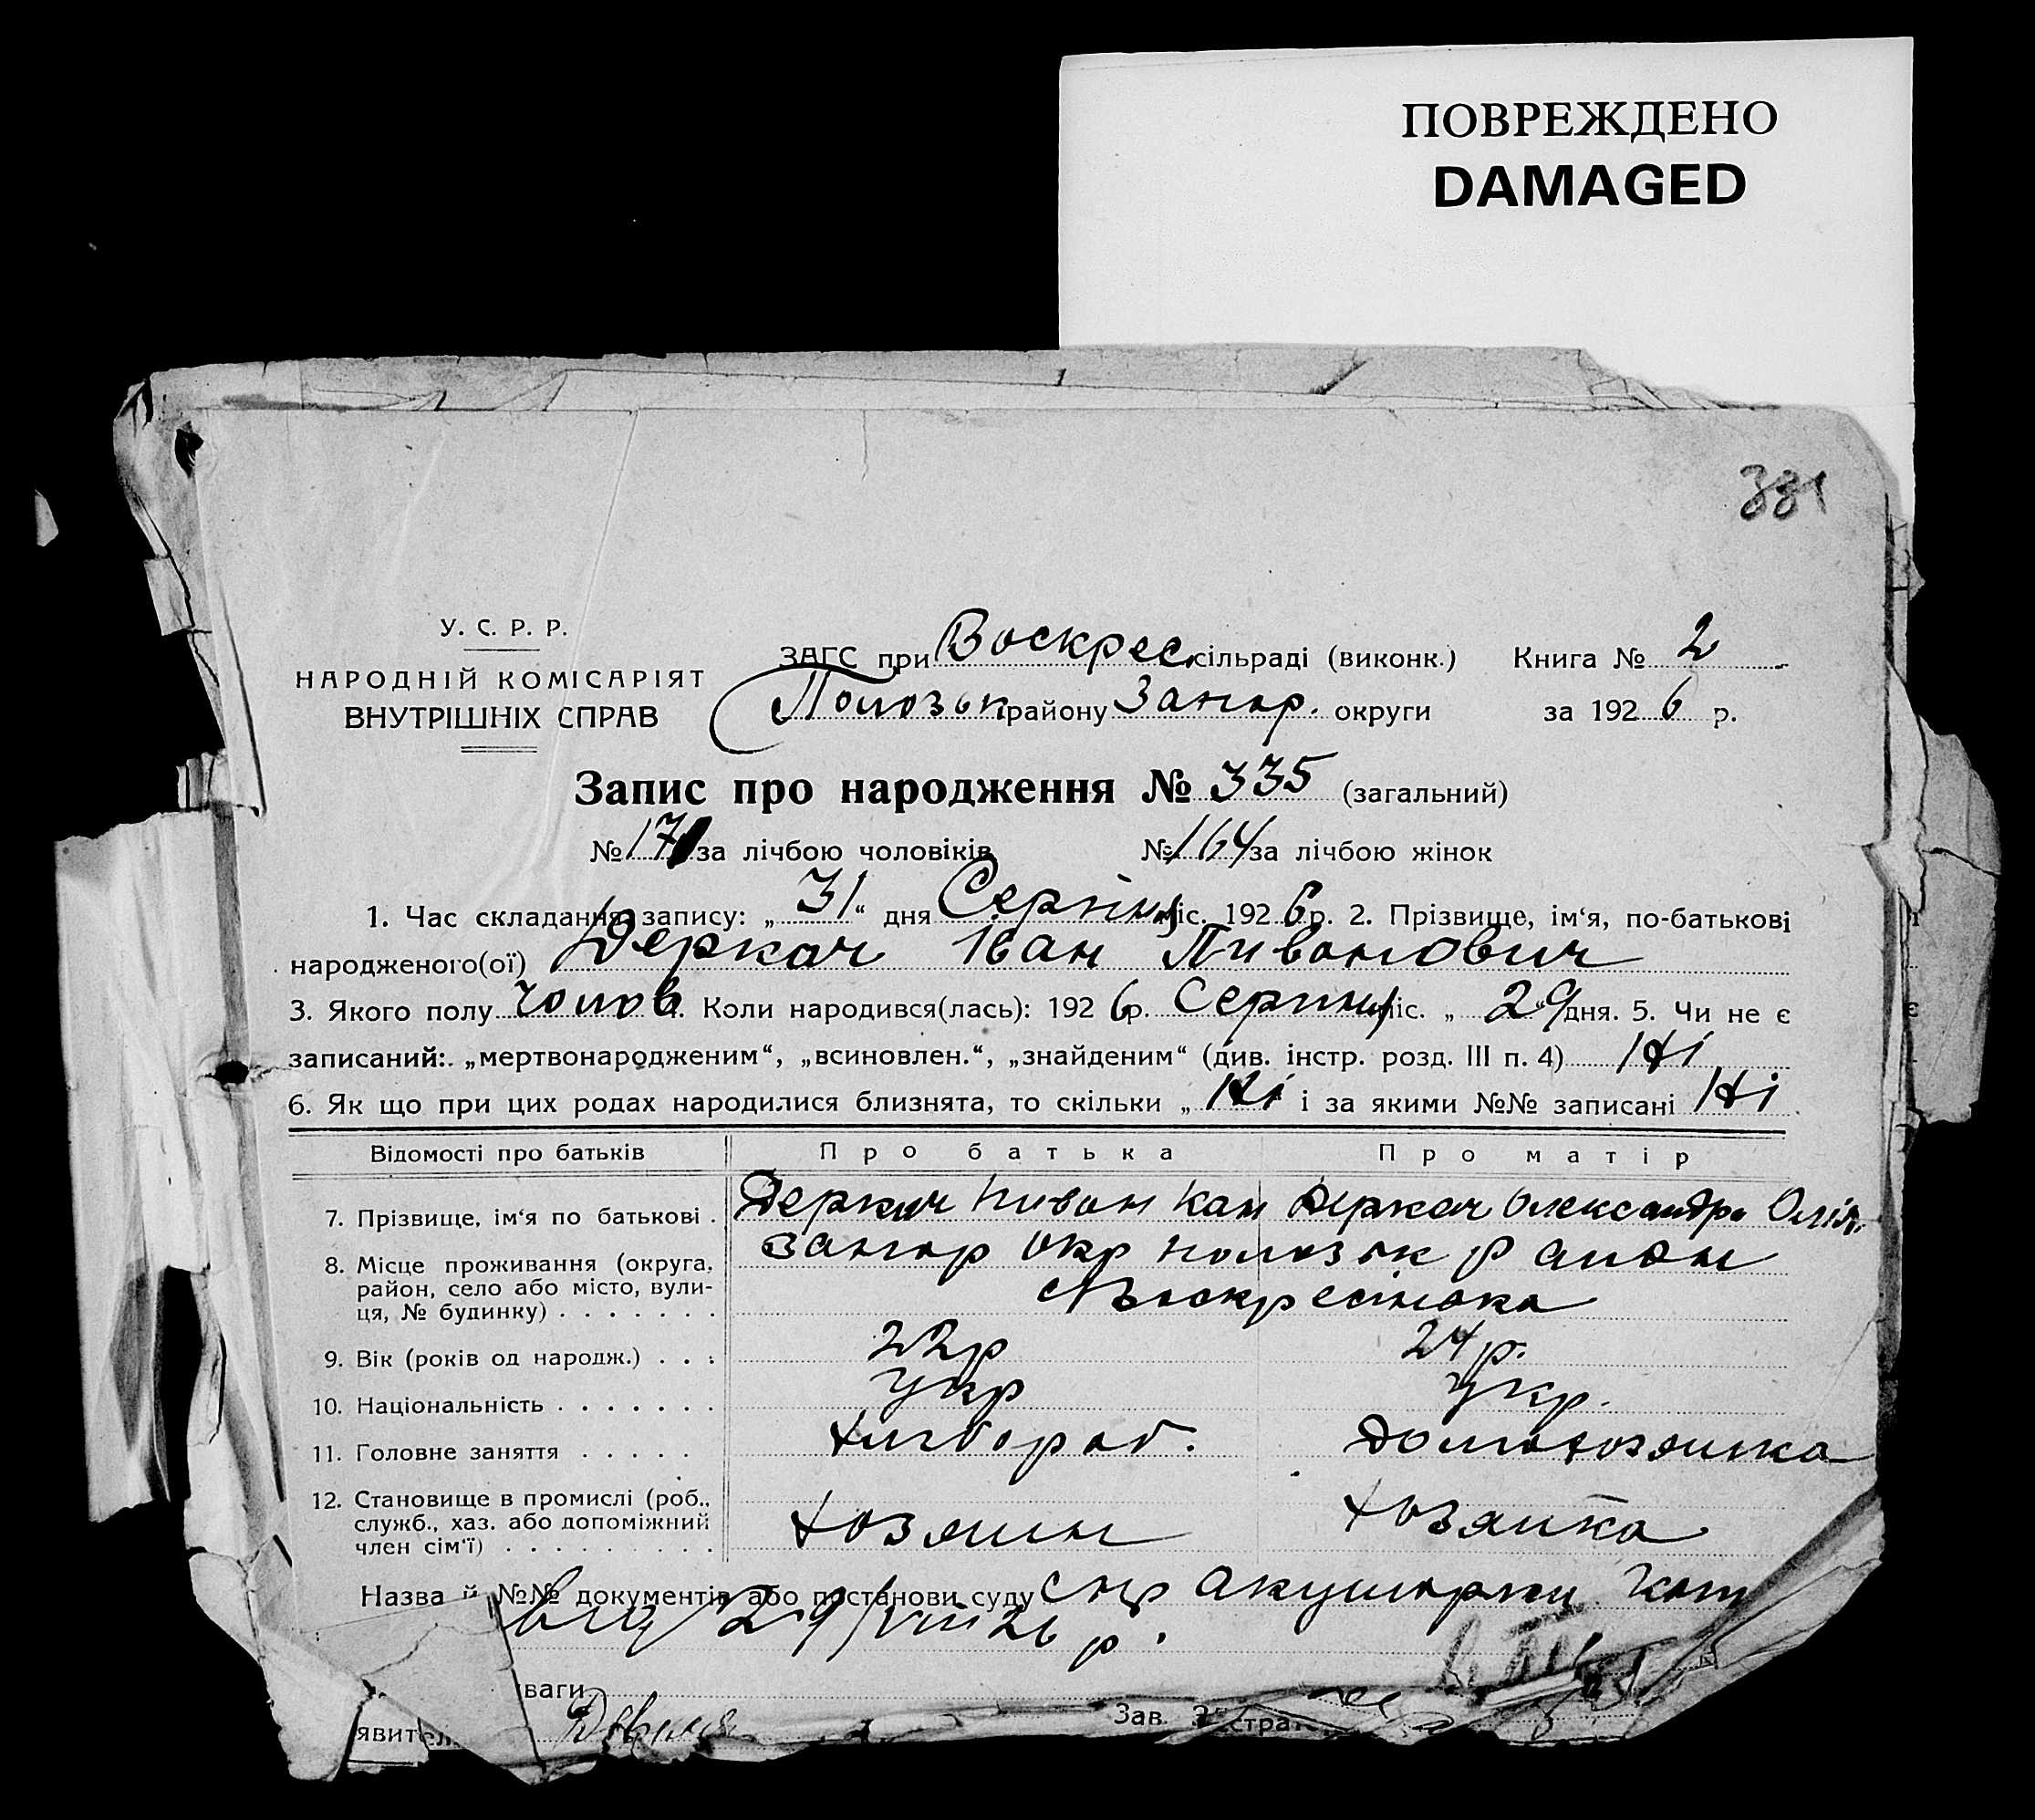 ПОВРЕЖДЕНО
DAMAGED
331
У. С. Р. Р.
НАРОДНІЙ КОМІСАРІЯТ
ВНУТРІШНІХ СПРАВ
ЗАГС при Воскрес. сільраді (виконк.) Книга № 2
Полозьк району Запор. округи за 1926 р.
Запис про народження № 335 (загальний)
№ 171 за лічбою чоловіків № 164 за лічбою жінок
1. Час складання запису: „31“ дня Серпня міс. 1926 р. 2. Прізвище, ім‘я, по-батькові
народженого(ої) Деркач Іван Пивонович
3. Якого полу чолов. Коли народився(лась): 1926 р. Серпня міс. „29 дня. 5. Чи не є
записаний: „мертвонародженим“, „всиновлен.“, „знайденим“ (див. інстр. розд. III п. 4) Ні
6. Як що при цих родах народилися близнята, то скільки „Ні і за якими №№ записані Ні
Відомості про батьків Про батька Про матір
7. Прізвище, ім‘я по батькові . Деркач Пивон Деркач Олександра
8. Місце проживання (округа, район, село або місто, вулиця, № будинку) Запор окр полозьк район
с Воскресінька
9. Вік (років од народж.) 22р 24р.
10. Національність укр укр.
11. Головне заняття хлібороб. Домохозяйка
12. Становище в промислі (роб., служб., хаз. або допоміжний член сім‘ї) хозяин хозяйка
Назва й №№ документів або постанови суду акушорки
від 29/VIII 26 р.
ваги
явител Зав.